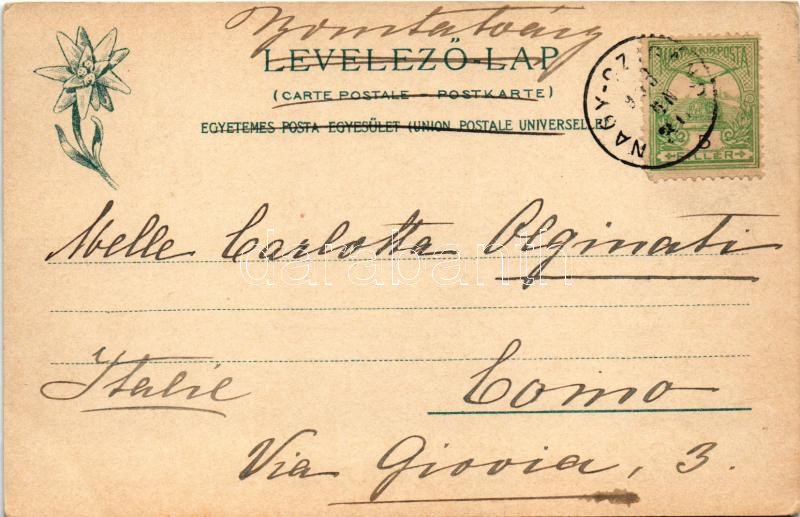 Nyomtatvány
LEVELEZŐ-LAP
(CARTE POSTALE – POSTKARTE)
EGYETEMES POSTA EGYESÜLET (UNION POSTALE UNIVERSELLE)
MAGYAR KIR. POSTA
NAGY-SZ
5
FILLÉR
Melle Carlotta Olginati
darabanth
Italie Como
Via Giovia, 3.